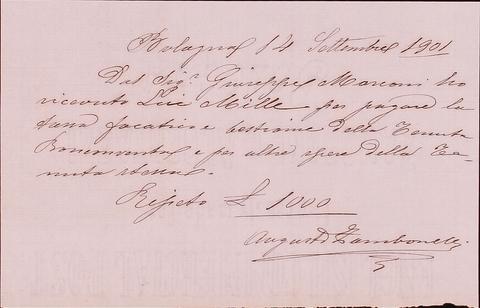 Bologna 14 Settembre 1901
Dal Sigr. Giuseppe Marconi ho
ricevuto Lire Mille per pagare la
tassa focatico e bestiame della Tenuta
Bonconvento e per altre spese della Te-
nuta stessa.
Ripeto £ 1000
Augusto Zambonelli